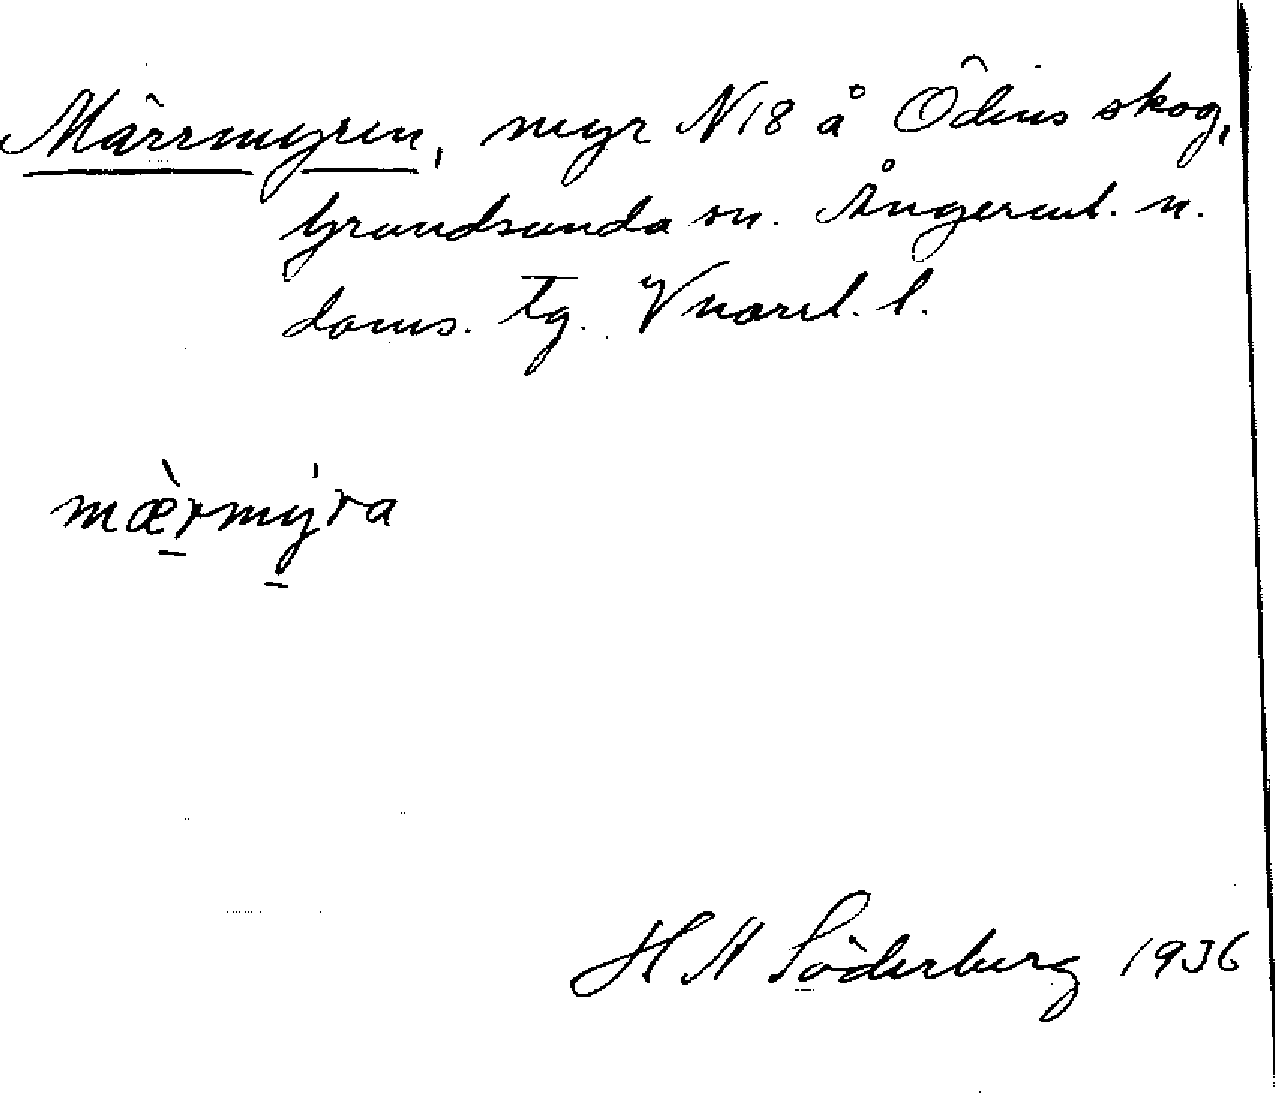 Märrmyren, myr N 18 å Ödens skog,
Grundsunda sn. Ångerml. n.
doms. tg. Vnorrl. l.
mæ̀rmýra
H A Söderberg 1936